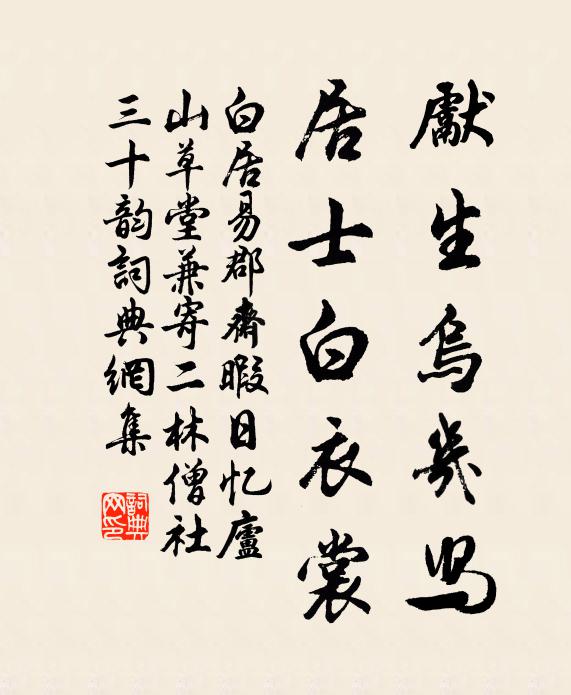 獻生烏幾舄
居士白衣裳
白居易郡齋暇日忆廬
山草堂兼寄二林僧社
三十韵詞典網集
詞典
网印